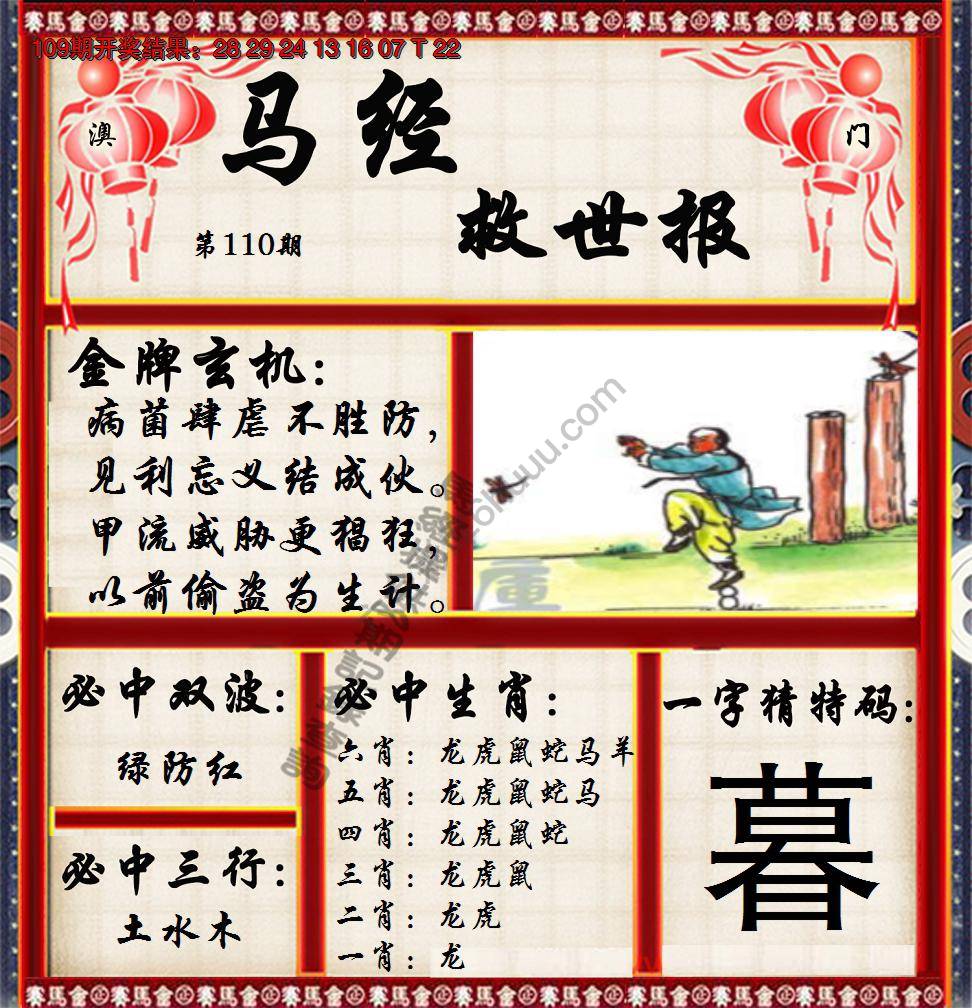 109期开奖结果：28 29 24 13 16 07 T 22
澳 门
马经
救世报
第110期
金牌玄机：
病菌肆虐不胜防，
见利忘义结成伙。
甲流威胁更猖狂，
以前偷盗为生计。
必中双波：
绿防红
必中三行：
土水木
必中生肖：
六肖：龙虎鼠蛇马羊
五肖：龙虎鼠蛇马
四肖：龙虎鼠蛇
三肖：龙虎鼠
二肖：龙虎
一肖：龙
一字猜特码：
暮